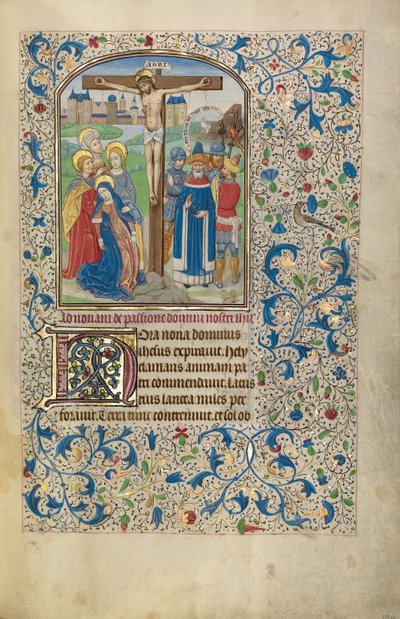 INRI
Ad nonam de passione domini nostri ihu
Hora nona dominus
ihesus expirauit. hely
clamans animam pa
tri commendauit. Latus
eius lancea miles per
forauit. Terra tunc contremuit. et sol ob